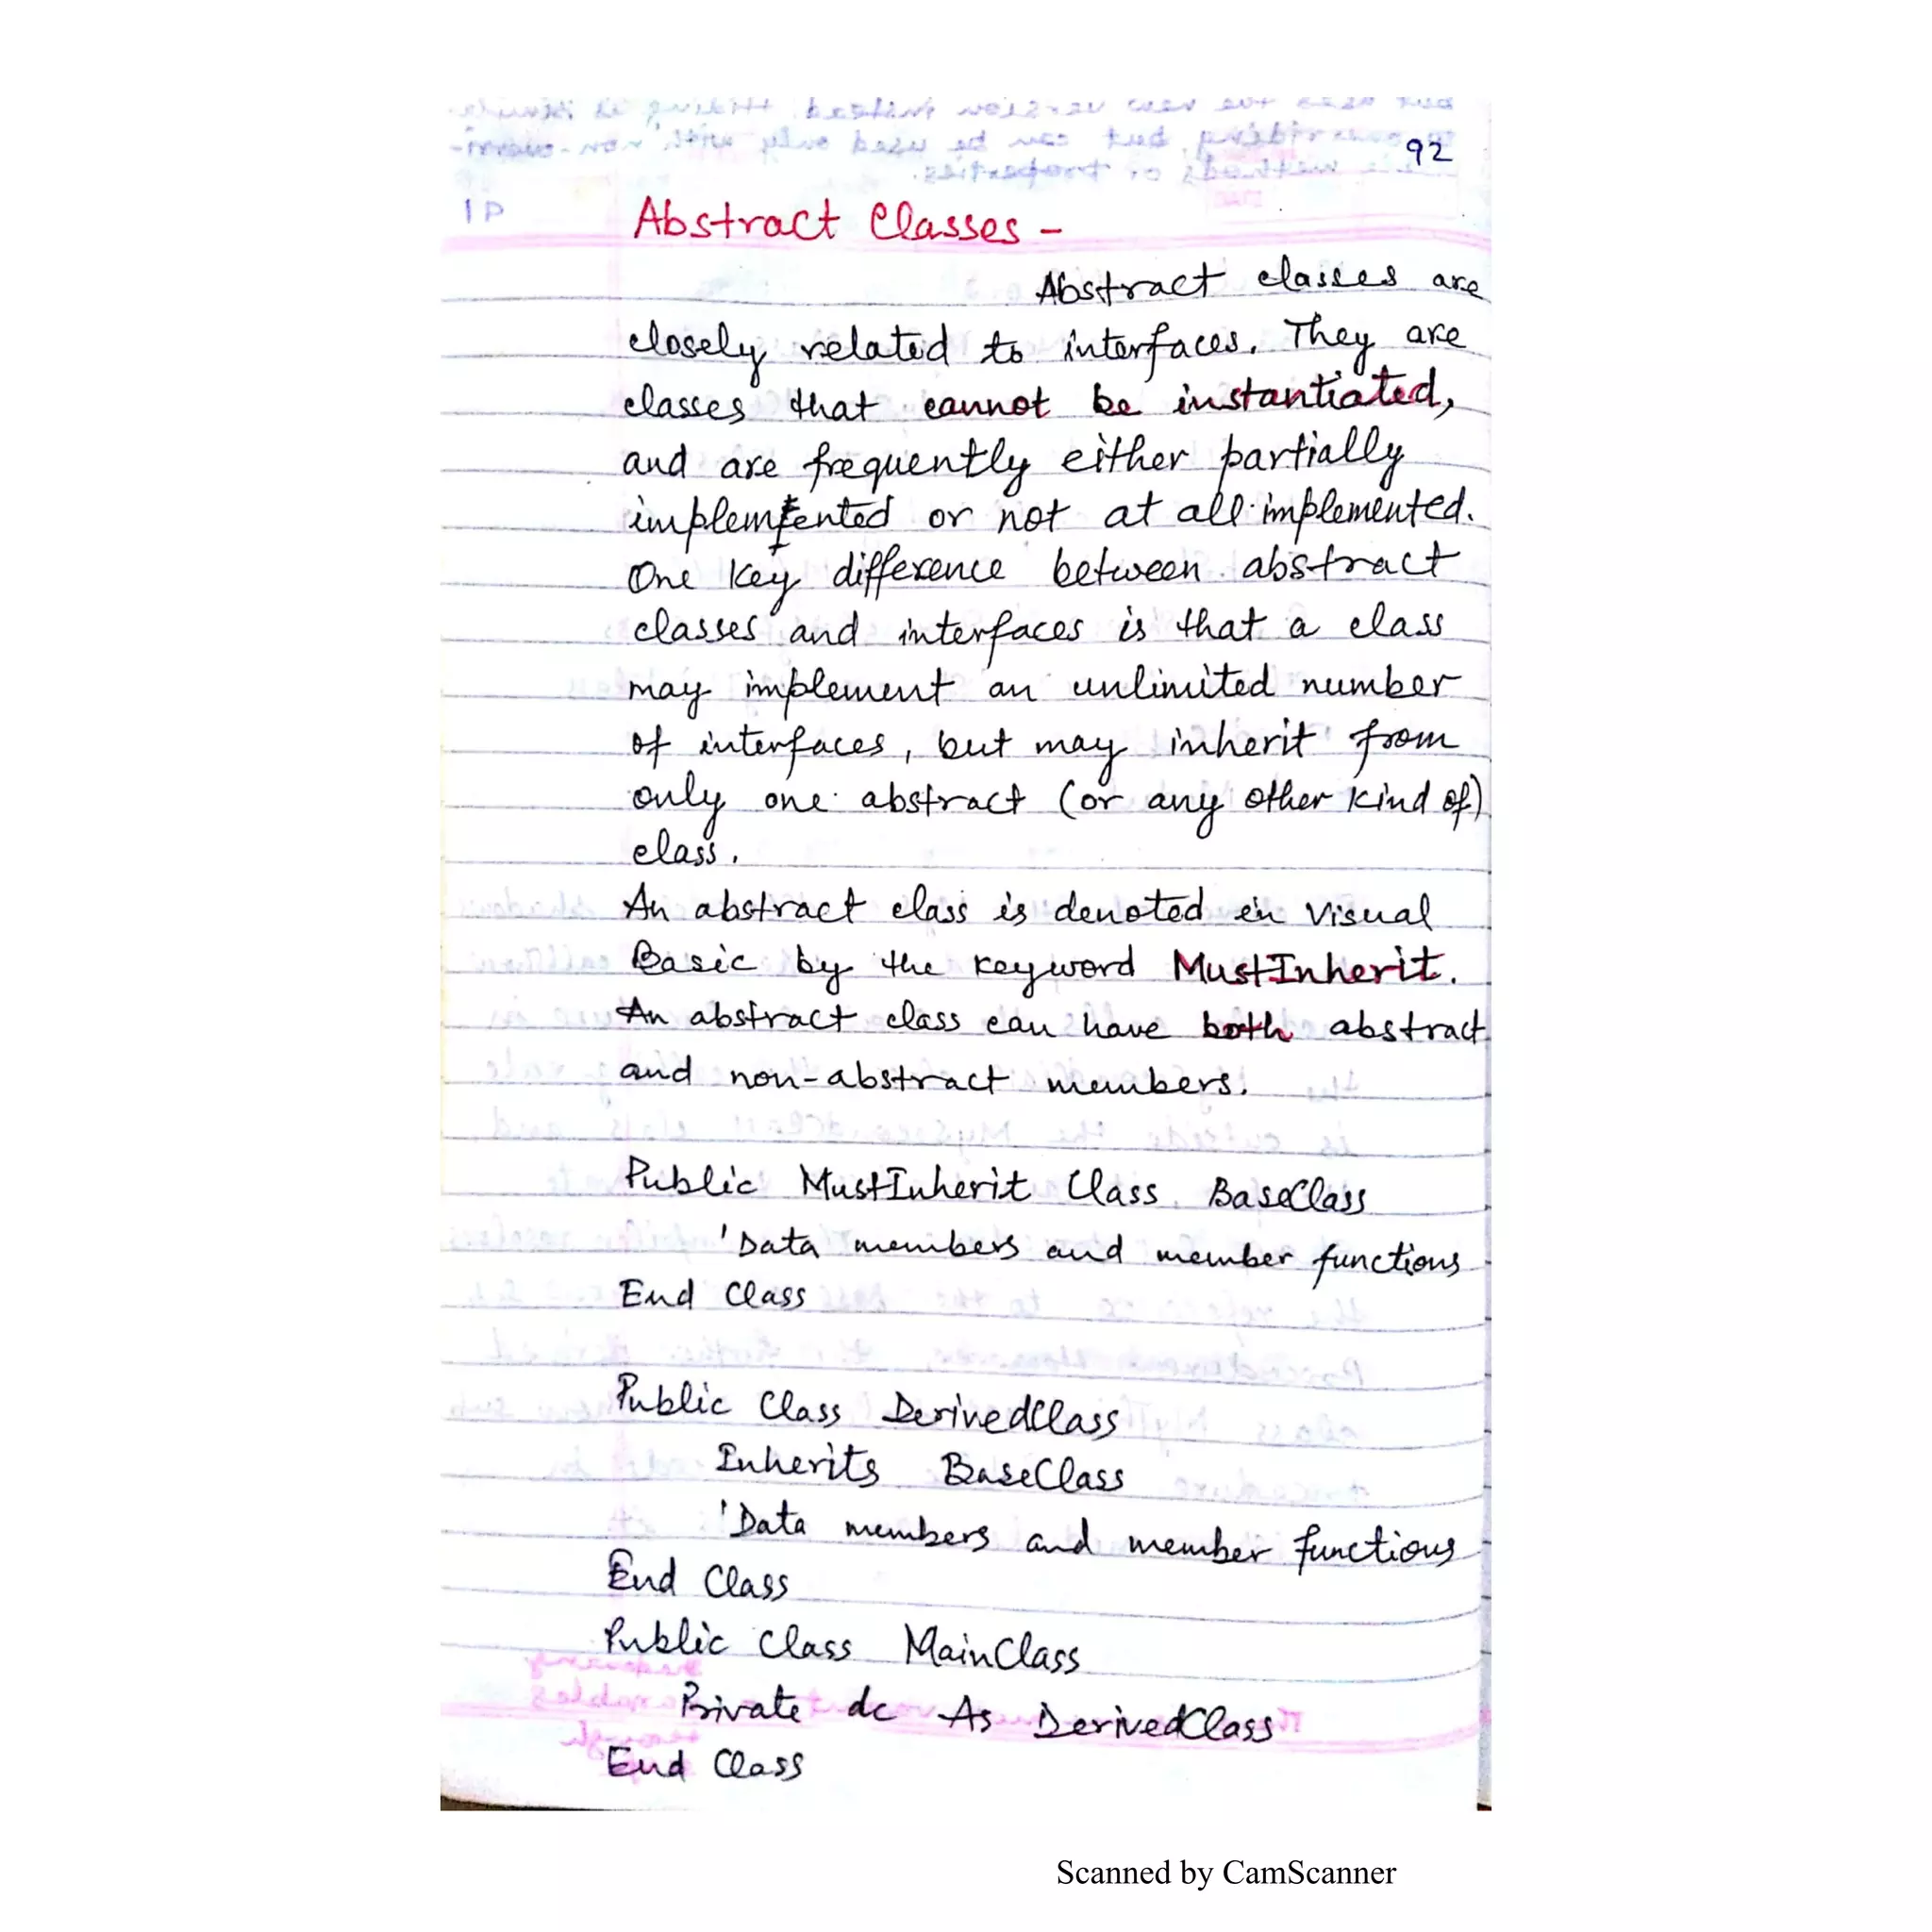 92
Abstract Classes -
Abstract classes are
closely related to interfaces. They are
classes that cannot be instantiated,
and are frequently either partially
implemented or not at all implemented.
One key difference between abstract
classes and interfaces is that a class
may implement an unlimited number
of interfaces, but may inherit from
only one abstract (or any other kind of)
class.
An abstract class is denoted in Visual
Basic by the keyword MustInherit.
An abstract class can have both abstract
and non-abstract members.
Public MustInherit Class BaseClass
'Data members and member functions
End Class
Public Class DerivedClass
Inherits BaseClass
'Data members and member functions
End Class
Public Class MainClass
Private dc As DerivedClass
End Class
Scanned by CamScanner